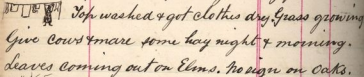 Top washed & got clothes dry. Grass growing
Give cows & mare some hay night & morning.
Leaves coming out on Elms. No sign on Oaks.